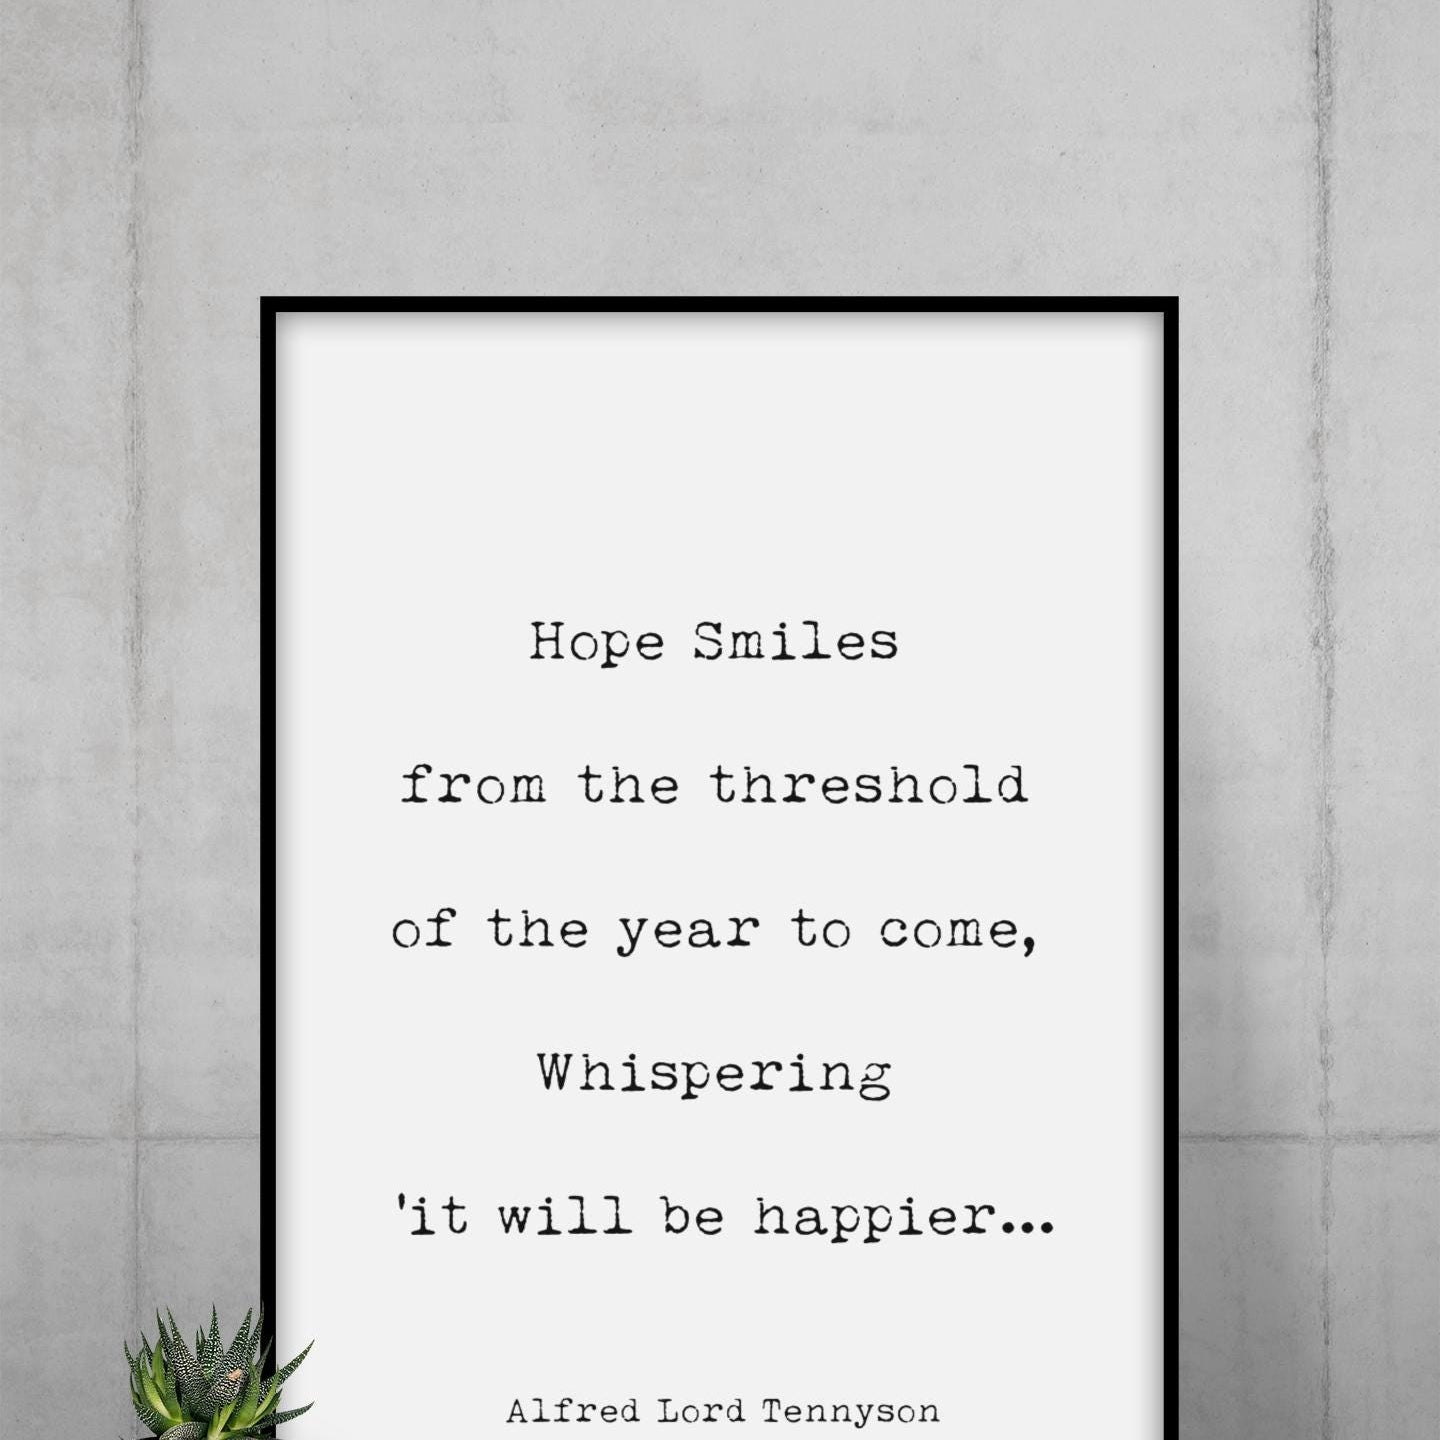 Hope Smiles
from the threshold
of the year to come,
Whispering
'it will be happier...
Alfred Lord Tennyson